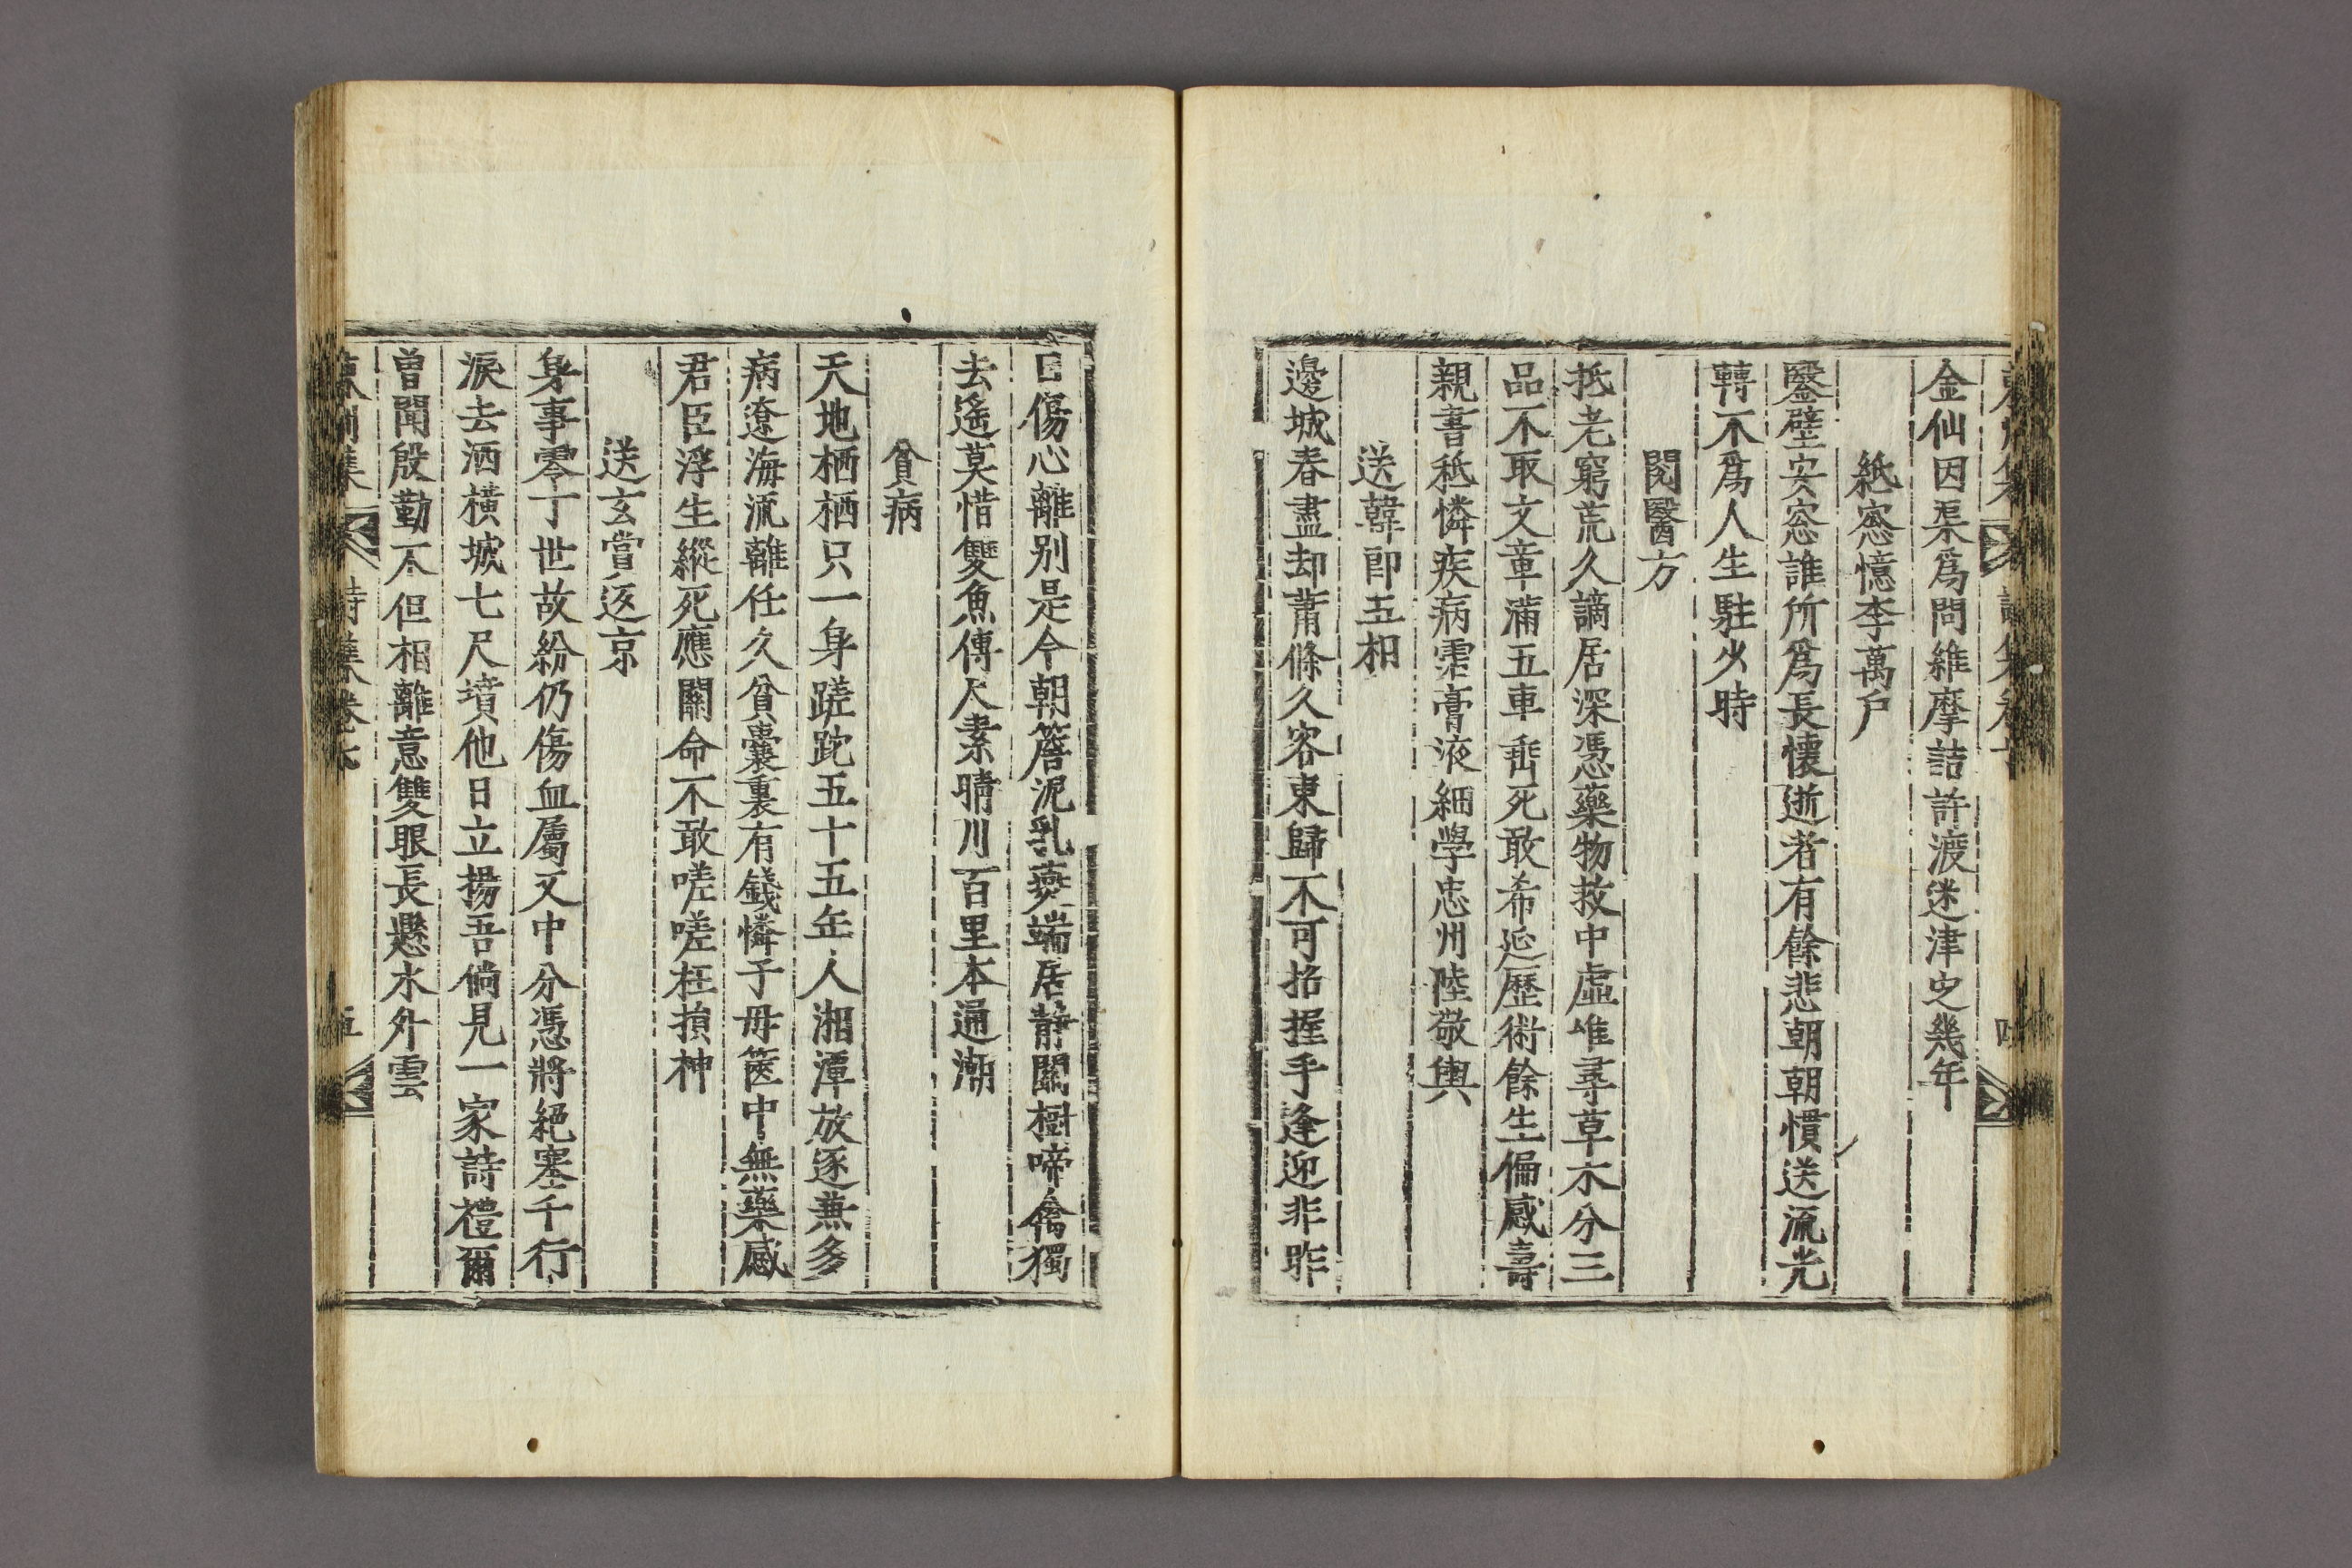 金仙因果爲問維摩詰許渡迷津定幾年
紙窓憶李萬戶
鑿壁安窓誰所爲長懷逝者有餘悲朝朝慣送流光
轉不爲人生駐少時
閱醫方
抵老窮荒久謫居深憑藥物救中虛唯尋草木分三
品不取文章滿五車垂死敢希延歷術餘生偏感壽
親書秪憐疾病需膏液細學忠州陸敬輿
送韓卽五相
邊城春盡却蕭條久客東歸不可招握手逢迎非昨
日傷心離别是今朝簷泥乳燕端居靜關樹啼禽獨
去遙莫惜雙魚傳尺素晴川百里本通潮
貧病
天地栖栖只一身蹉跎五十五年人湘潭放逐兼多
病遼海流離任久貧囊裏有錢憐子母篋中無藥感
君臣浮生縱死應關命不敢嗟嗟枉損神
送玄嘗返京
身事零丁世故紛仍傷血屬又中分憑將絕塞千行
淚去洒橫城七尺墳他日立揚吾倘見一家詩禮爾
曾聞殷勤不但相離意雙眼長懸水外雲
集 詩集卷六 五